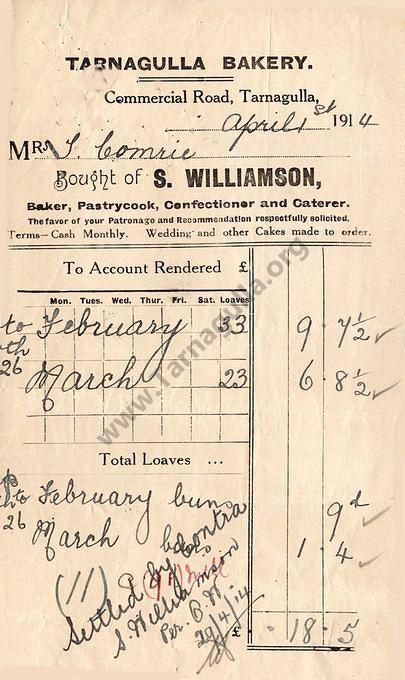 TARNAGULLA BAKERY.
Commercial Road, Tarnagulla,
April 1st 1914
MRS J. Comrie
Bought of S. WILLIAMSON,
Baker, Pastrycook, Confectioner and Caterer.
The favor of your Patronage and Recommendation respectfully solicited.
Terms—Cash Monthly. Wedding and other Cakes made to order.
To Account Rendered £
Mon. Tues. Wed. Thur. Fri. Sat. Loaves
to February 33 9 . 7 1/2
th
26
March 23 6 . 8 1/2
Total Loaves ...
to February buns 9d
26
March 1 . 4
(11)
Settled by Contra
S. Williamson
Per. B. W
29/4/14
£ 18 . 5
www.Tarnagulla.org